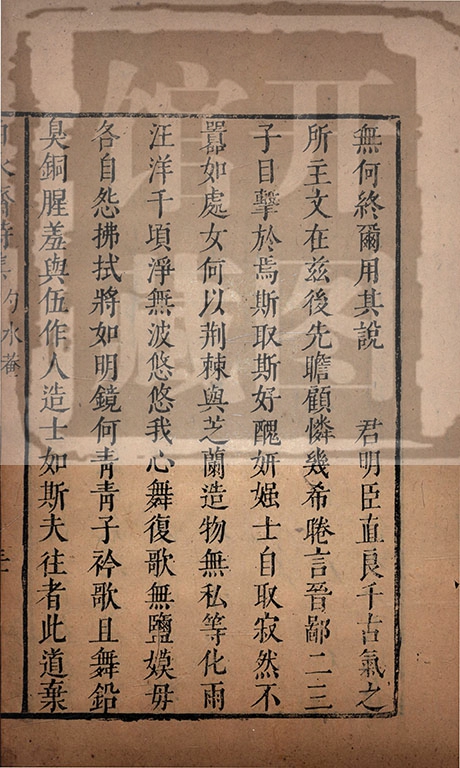 無何終爾用其說　　君明臣直良千古氣之
所主文在茲後先瞻顧憐幾希睠言晉鄙二三
子目擊於焉斯取斯好醜妍媸士自取寂然不
囂如處女何以荆棘與芝蘭造物無私等化雨
汪洋千頃淨無波悠悠我心舞復歌無鹽嫫毋
各自怨拂拭將如明鏡何青青子衿歌且舞鉛
臭銅腥羞與伍作人造士如斯夫往者此道棄
水齋詩集 勺水菴
开图
馆藏